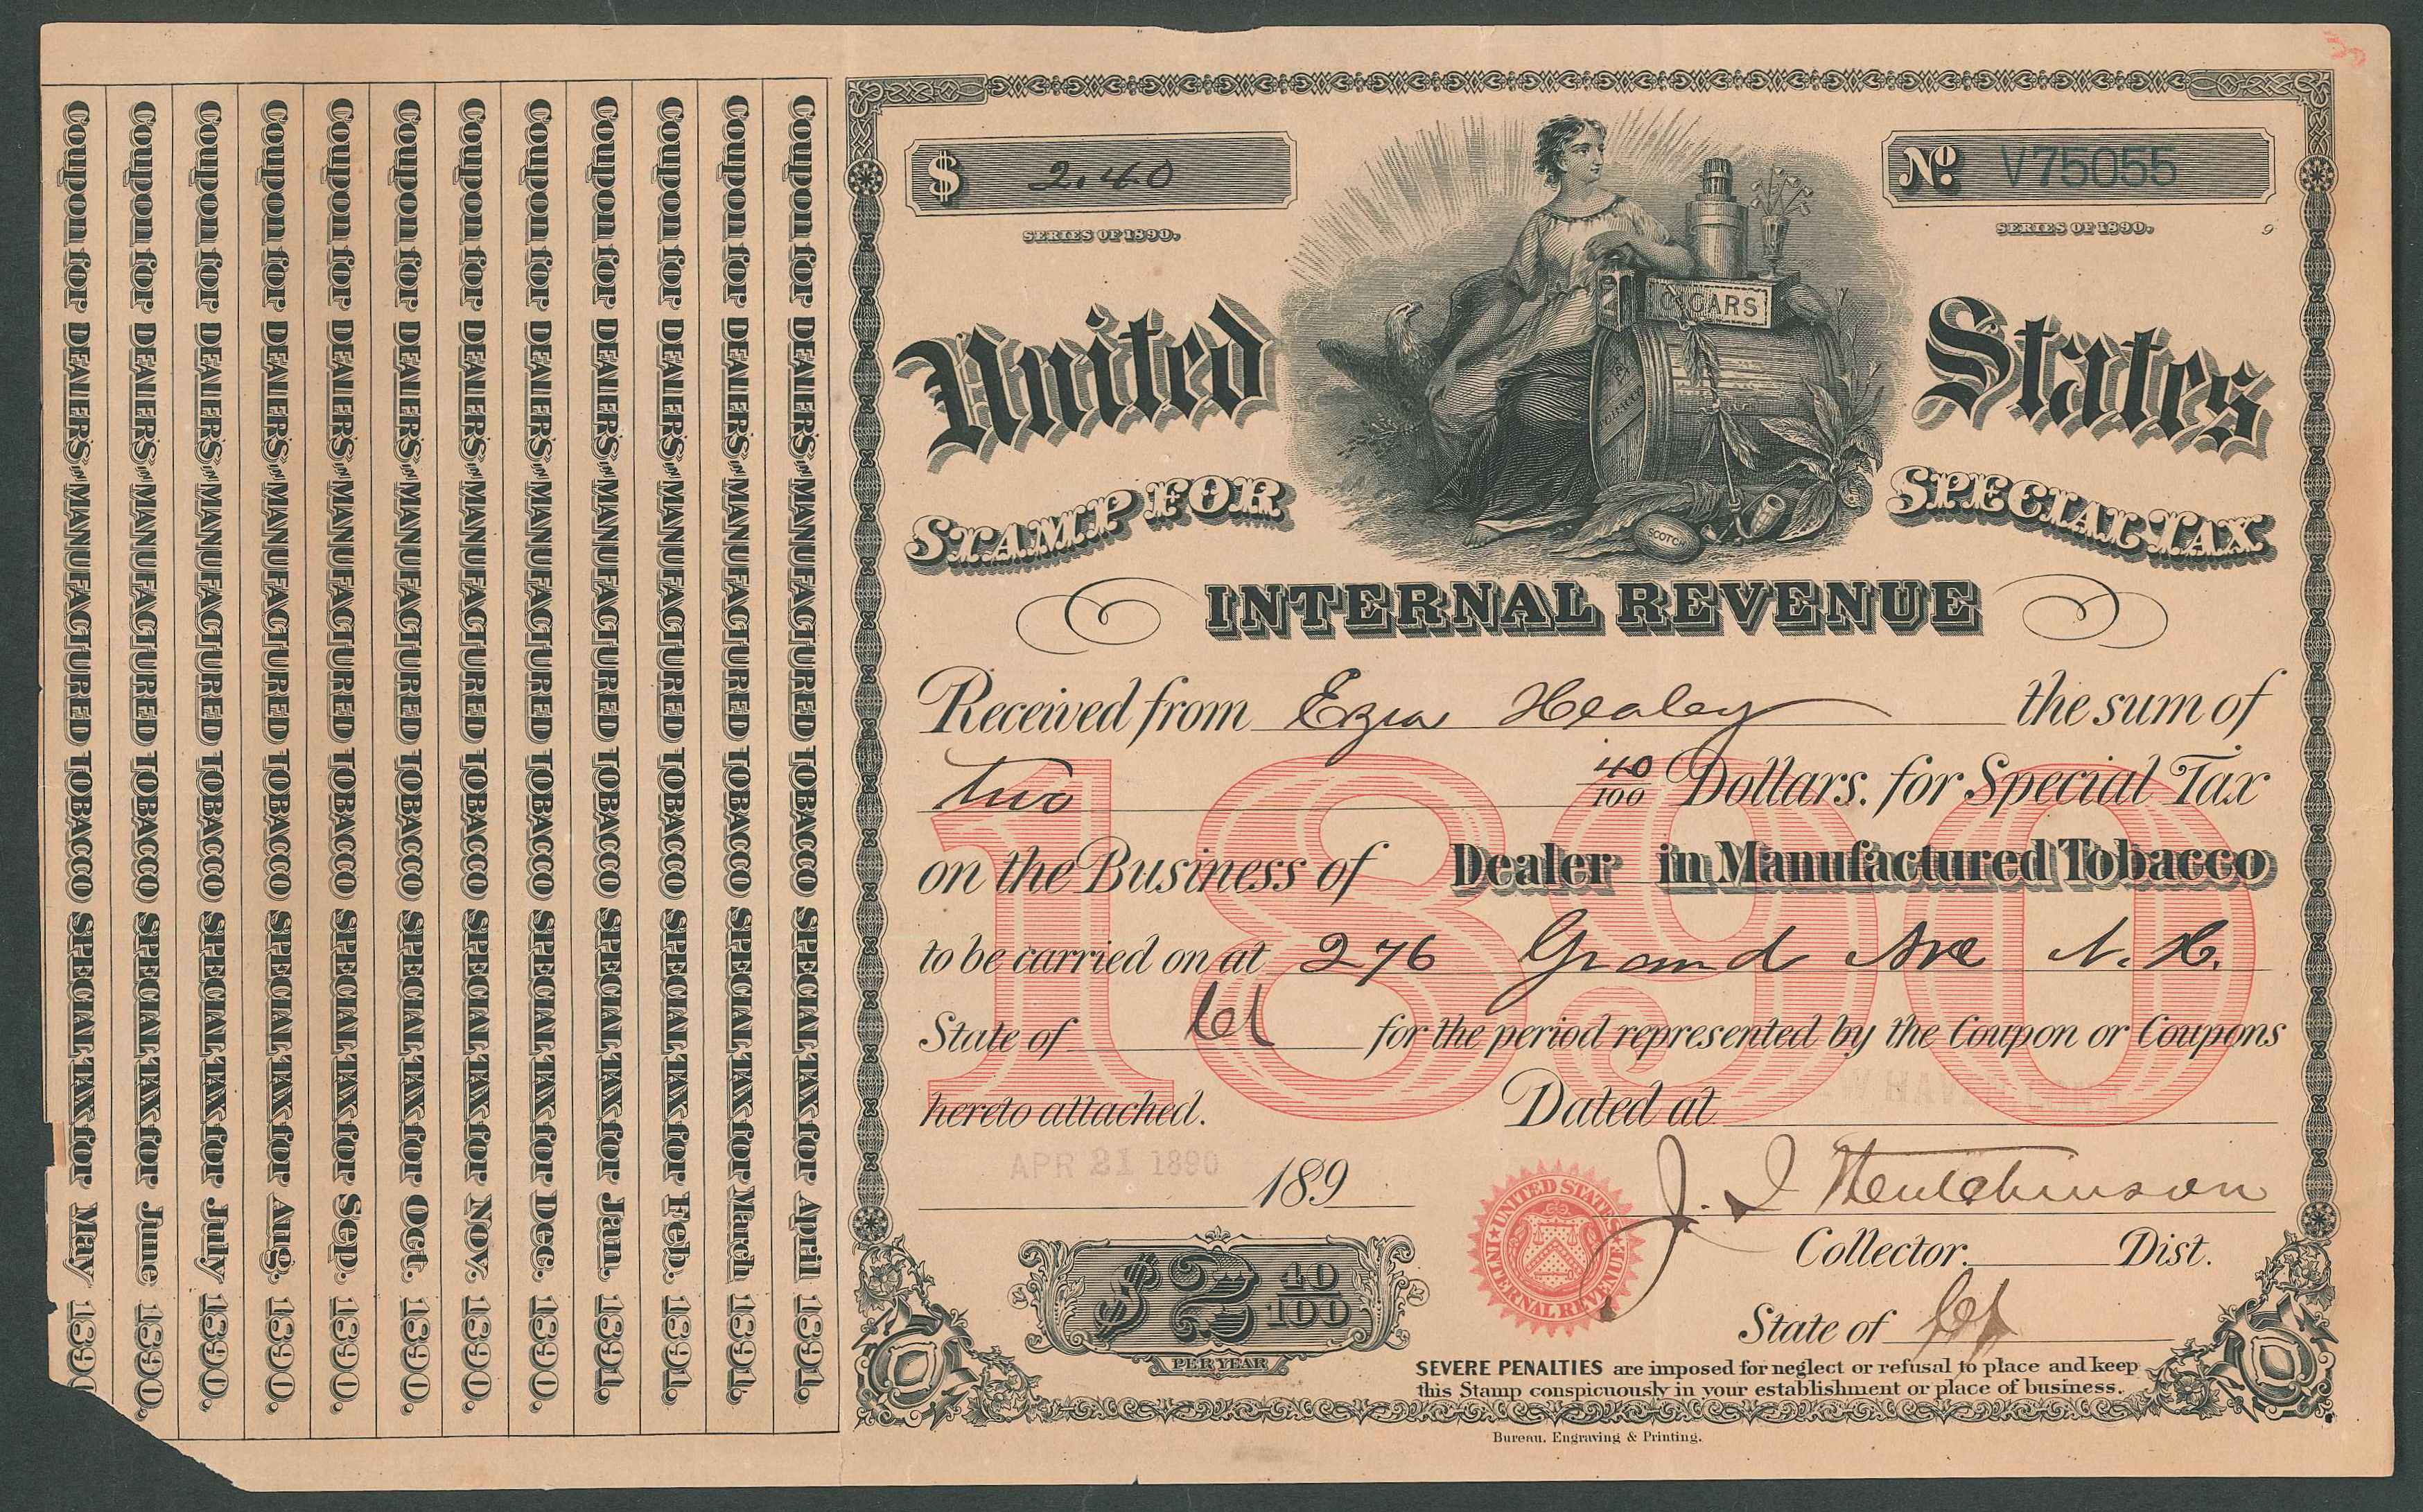 Coupon for DEALERS IN MANUFACTURED TOBACCO SPECIAL TAX for May 1890
Coupon for DEALERS IN MANUFACTURED TOBACCO SPECIAL TAX for June 1890.
Coupon for DEALERS IN MANUFACTURED TOBACCO SPECIAL TAX for July 1890.
Coupon for DEALERS IN MANUFACTURED TOBACCO SPECIAL TAX for Aug. 1890.
Coupon for DEALERS IN MANUFACTURED TOBACCO SPECIAL TAX for Sep. 1890.
Coupon for DEALERS IN MANUFACTURED TOBACCO SPECIAL TAX for Oct. 1890.
Coupon for DEALERS IN MANUFACTURED TOBACCO SPECIAL TAX for Nov. 1890.
Coupon for DEALERS IN MANUFACTURED TOBACCO SPECIAL TAX for Dec. 1890.
Coupon for DEALERS IN MANUFACTURED TOBACCO SPECIAL TAX for Jan. 1891.
Coupon for DEALERS IN MANUFACTURED TOBACCO SPECIAL TAX for Feb. 1891.
Coupon for DEALERS IN MANUFACTURED TOBACCO SPECIAL TAX for March 1891.
Coupon for DEALERS IN MANUFACTURED TOBACCO SPECIAL TAX for April 1891.
$ 2.40
No. V75055
SERIES OF 1890.
SERIES OF 1890. 9
CIGARS
TOBACCO
SCOTCH
United States
STAMP FOR SPECIAL TAX
INTERNAL REVENUE
Received from Ezra Healey the sum of
two 40/100 Dollars, for Special Tax
on the Business of Dealer in Manufactured Tobacco
to be carried on at 276 Grand Ave N. H.
State of Ct for the period represented by the Coupon or Coupons
hereto attached. Dated at
1890
APR 21 1890 189
J. I. Hutchinson
UNITED STATES INTERNAL REVENUE
Collector. Dist.
State of Ct
$2 40/100
PER YEAR
SEVERE PENALTIES are imposed for neglect or refusal to place and keep
this Stamp conspicuously in your establishment or place of business.
Bureau, Engraving & Printing.